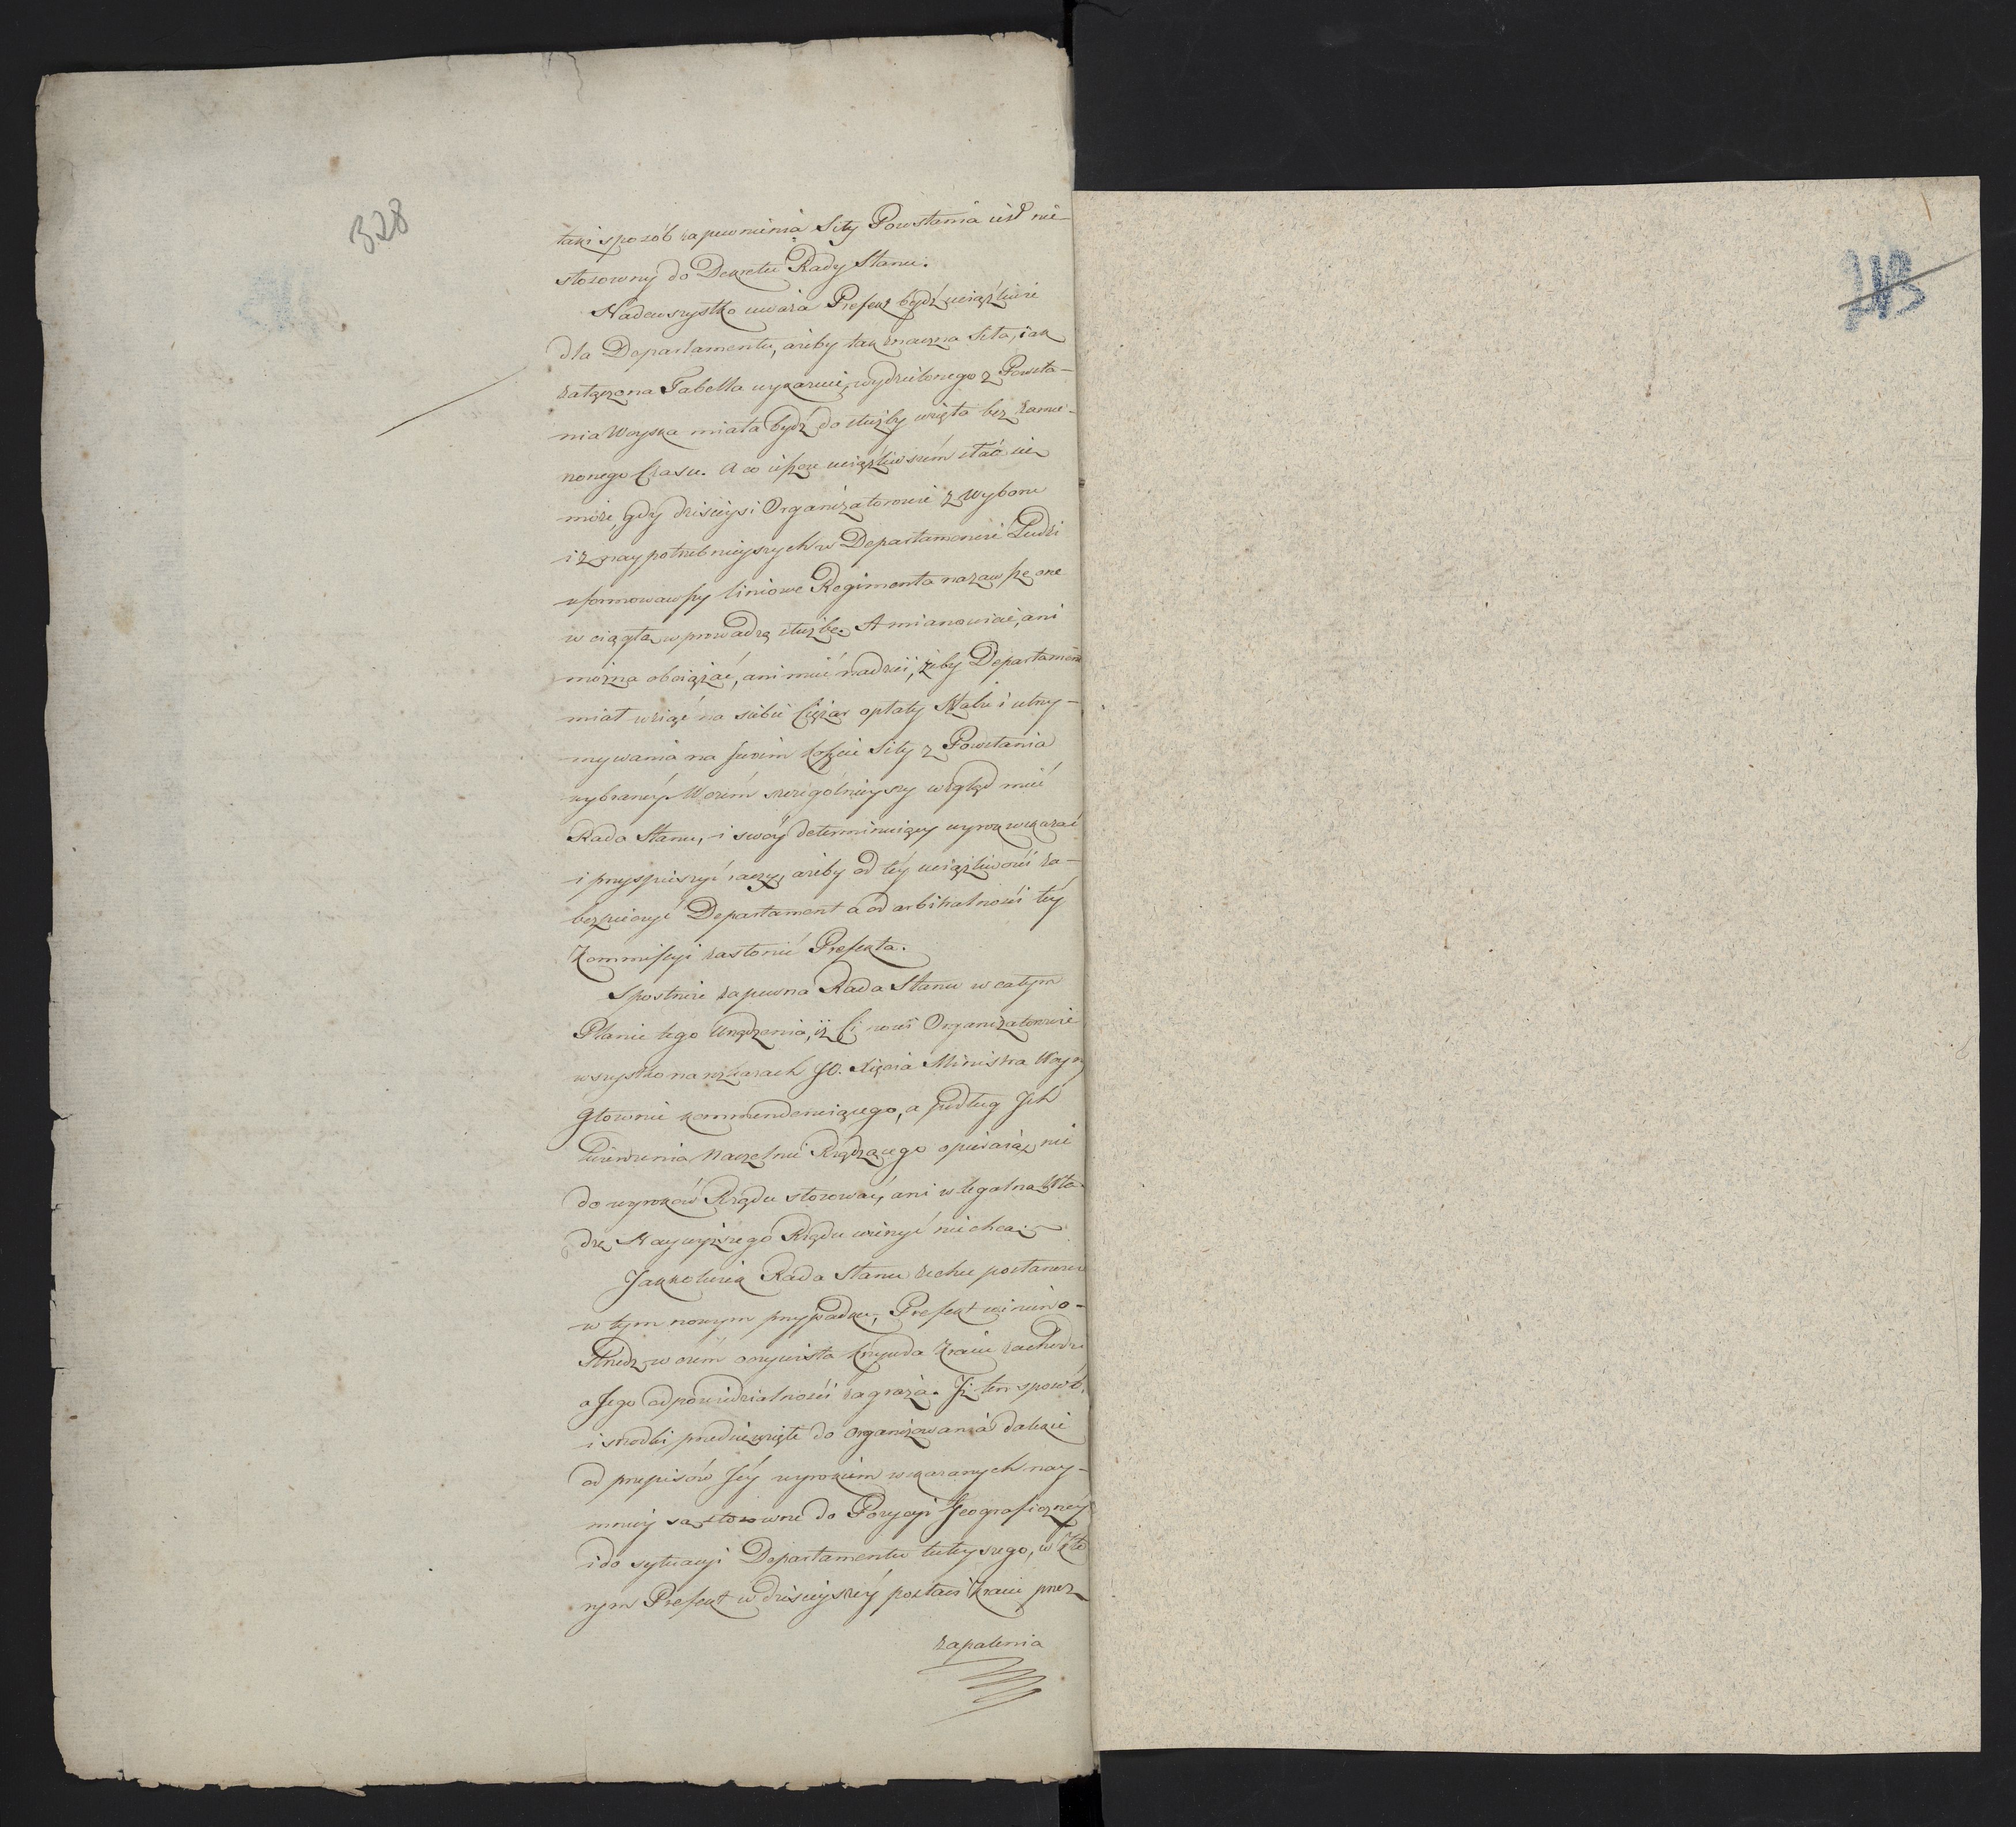 328
taki sposób zapewnienia Siły Powstania iest nie-
stosowny do Dekretu Rady Stanu.
Nadewszystko uważa Prefekt bydź uciążliwie
dla Departamentu, ażeby tak znaczna Siła, iak
załączona Tabella wykazuie, wydzielonego z Powsta-
nia Woyska miała bydź do służby wzięta bez zamie-
rzonego Czasu. A co ieszcze uciążliwszém stać się
może, gdy dzisieysi Organizatorowie z wyboru
i z naypotrzebnieyszych w Departamencie Ludzi
uformowawszy liniowe Regimenta na zawsze one
w ciągłą wprowadzą służbę. A mianowicie, ani
można obciążać, ani mieć nadzieii, żeby Departament
miał wziąć na siebie Ciężar opłaty Sztabu i utrzy-
mywania na swoim koszcie Siły z Powstania
wybranéy. W czém szczególnieyszy wzgląd mieć
Rada Stanu, i swóy determinuiący wyrok wskazać
i przyspieszyć raczy, ażeby od téy uciążliwości za-
bezpieczyć Departament a od arbitralności téy
Kommissyi zasłonić Prefekta.
Spostrzeże zapewna Rada Stanu w całym
Planie tego Urządzenia, iż Ci nowi Organizatorowie
wszystko na rozkazach JO. Xięcia Ministra Woyny
Głownie kommenderuiącego, a podług Ich
Twierdzenia Naczelnie Rządzącego opieraią, nie
do wyroków Rządu stosować, ani w legalną Wła-
dzę Naywyższego Rządu wierzyć nie chcą.
Jakkolwiek Rada Stanu zechce postanowić
w tym nowym przypadku, Prefekt winien o-
strzedz, w czém oczywista krzywda Kraiu zachodzi
a Jego odpowiedzialności zagraża. Iż ten sposób,
i srodki przedsięwzięte do organizowania dalekie
od przepisów Jéy wyrokiem wskazanych nay-
mniey są stosowne do Pozycyi Jeograficznéy
i do sytuacyi Departamentu tuteyszego, w któ-
rym Prefekt w dzisieyszéy postaci Kraiu przez
zapalenia